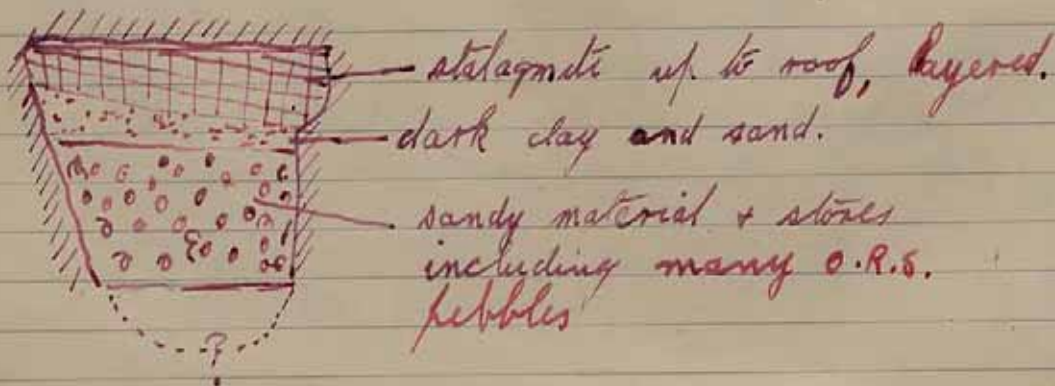 stalagmite up to roof, layered.
dark clay and sand.
sandy material + stones
including many O.R.S.
pebbles
?